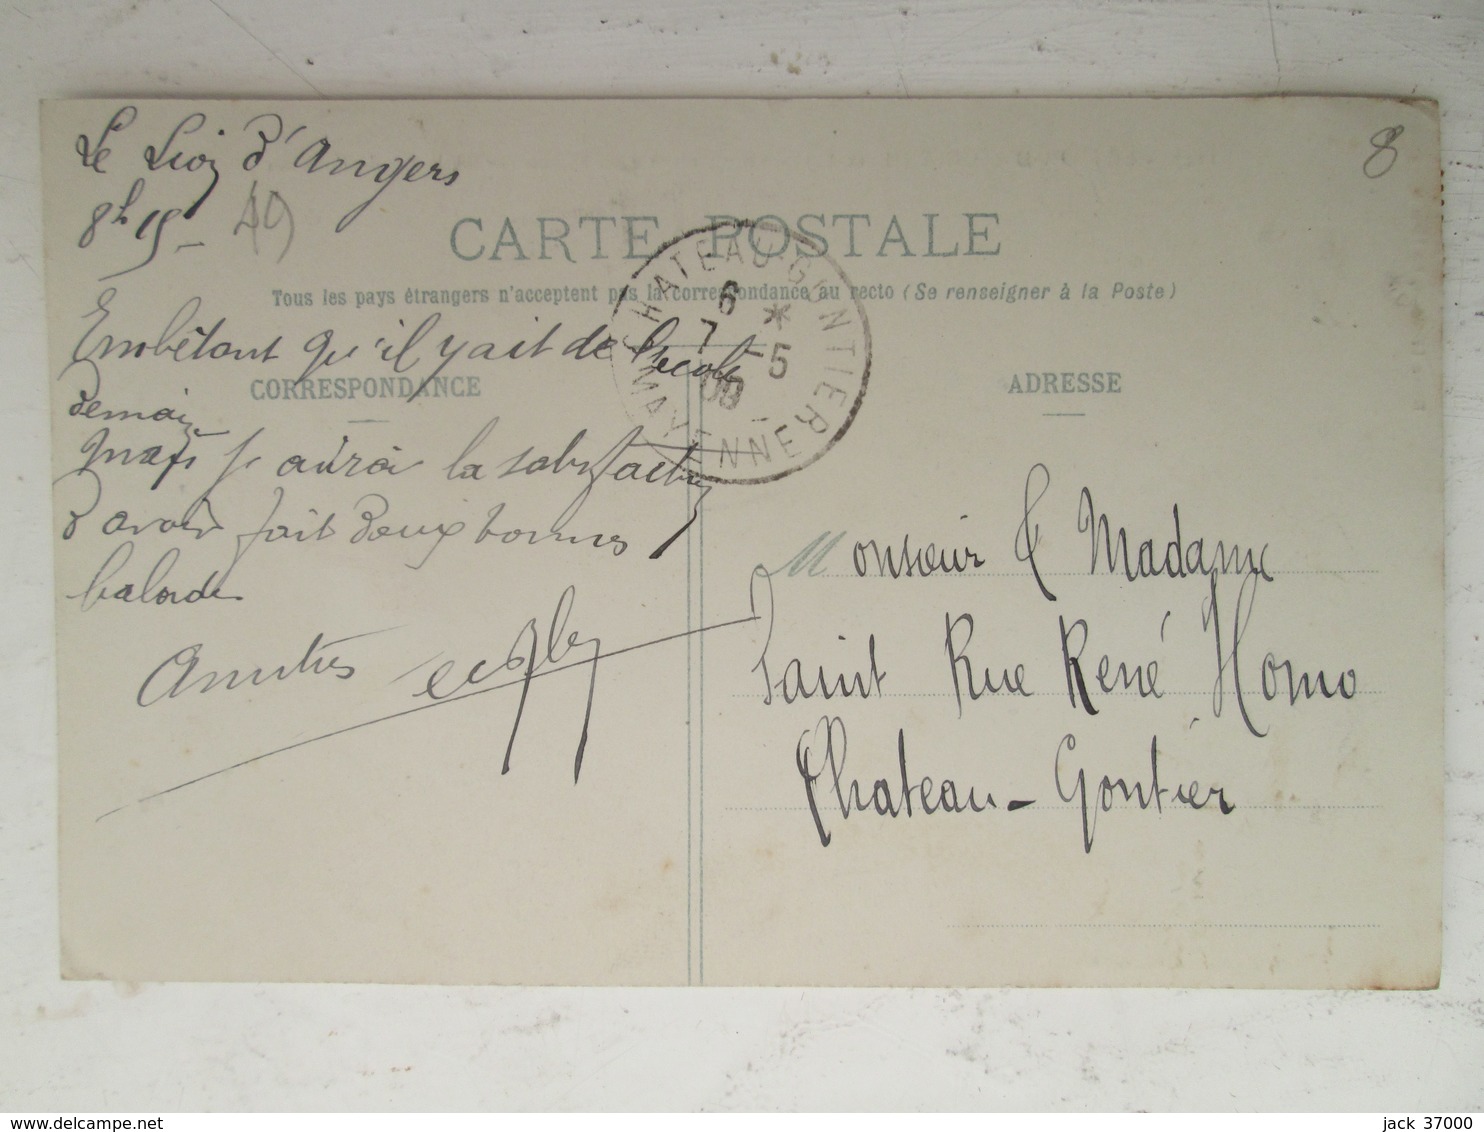 Le Lion d'Angers
8h 15 - 49
8
CARTE POSTALE
Tous les pays étrangers n'acceptent pas la correspondance au recto (Se renseigner à la Poste)
CHATEAU-GONTIER
6 *
7 -5
08
MAYENNE
CORRESPONDANCE
ADRESSE
Embêtant qu'il y ait de l'école
demain
mais je aurai la satisfaction
d avoir fait deux bonnes
balades
Amitiés
Monsieur & Madame
Saint Rue René Homo
Château-Gontier
jack 37000